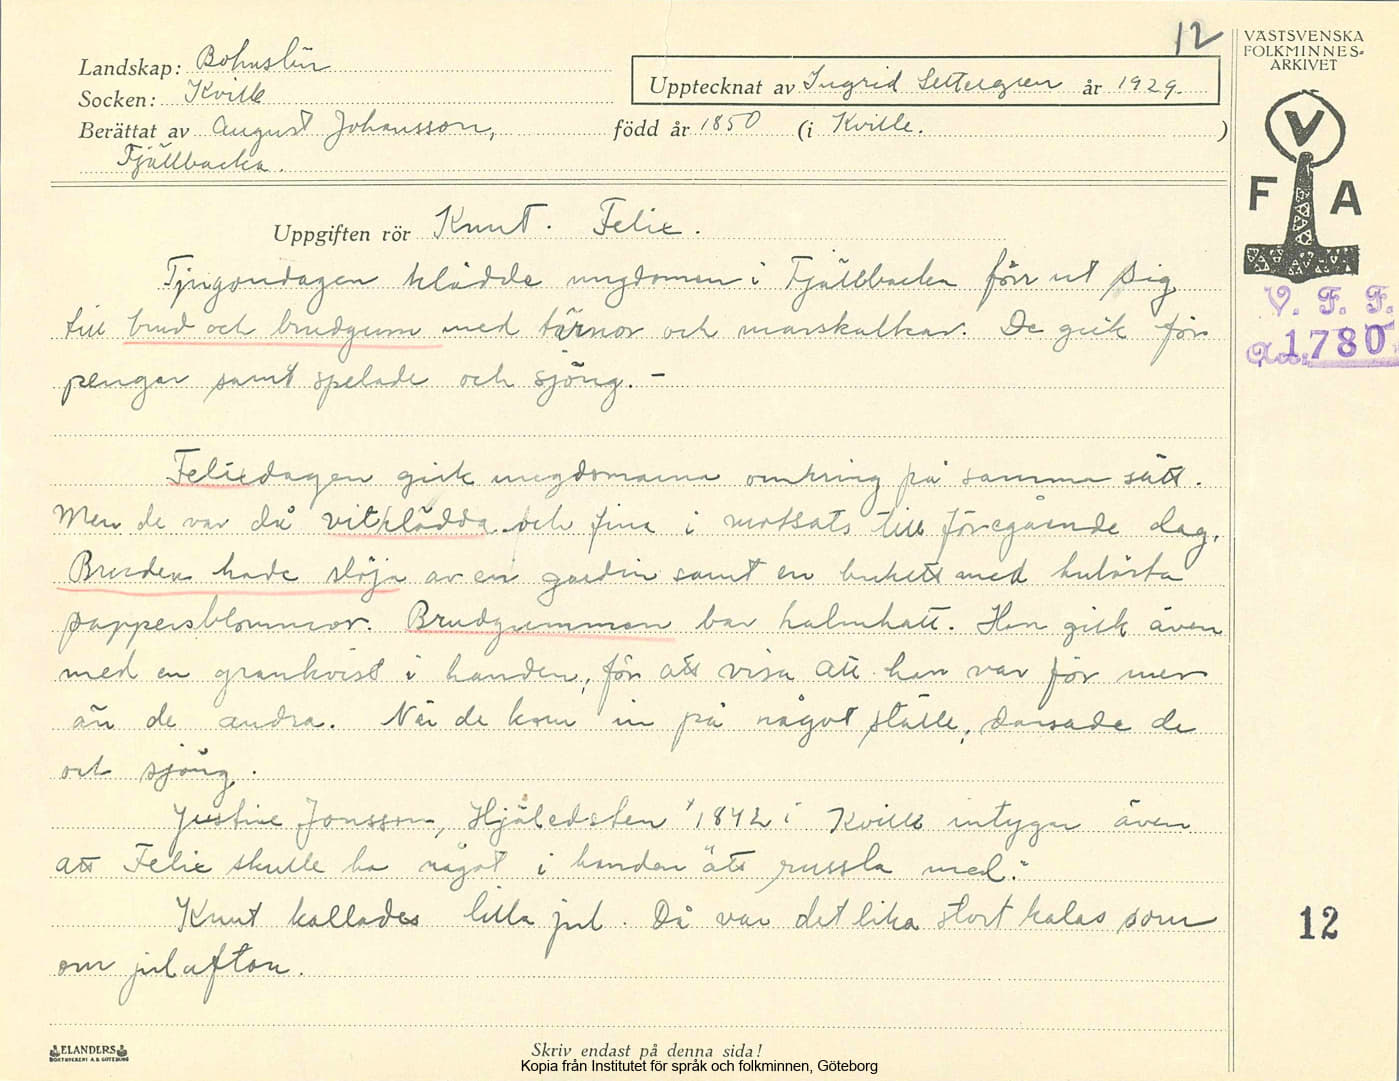 12
Landskap: Bohuslän
Socken: Kville
Upptecknat av Ingrid Settergren år 1929.
Berättat av August Johansson, född år 1850 (i Kville. )
Fjällbacka.
Uppgiften rör Knut. Felix.
Tjugondagen klädde ungdomen i Fjällbacka förr ut sig
till brud och brudgum med tärnor och marskalkar. De gick för
pengar samt spelade och sjöng. –
Felixdagen gick ungdomarna omkring på samma sätt.
Men de var då vitklädda och fina i motsats till föregående dag.
Bruden hade slöja av en gardin samt en bukett med kulörta
pappersblommor. Brudgummen bar halmhatt. Han gick även
med en grankvist i handen, för att visa att han var för mer
än de andra. När de kom in på något ställe, dansade de
och sjöng.
Justine Jonsson, Hjälmedsten * 1842 i Kville intygar även
att Felix skulle ha något i handen "att russla med."
Knut kallades lilla jul. Då var det lika stort kalas som
om julafton.
VÄSTSVENSKA
FOLKMINNES-
ARKIVET
V
F A
V. F. F.
1780
12
ELANDERS
BOKTRYCKERI A.B. GÖTEBORG
Skriv endast på denna sida!
Kopia från Institutet för språk och folkminnen, Göteborg